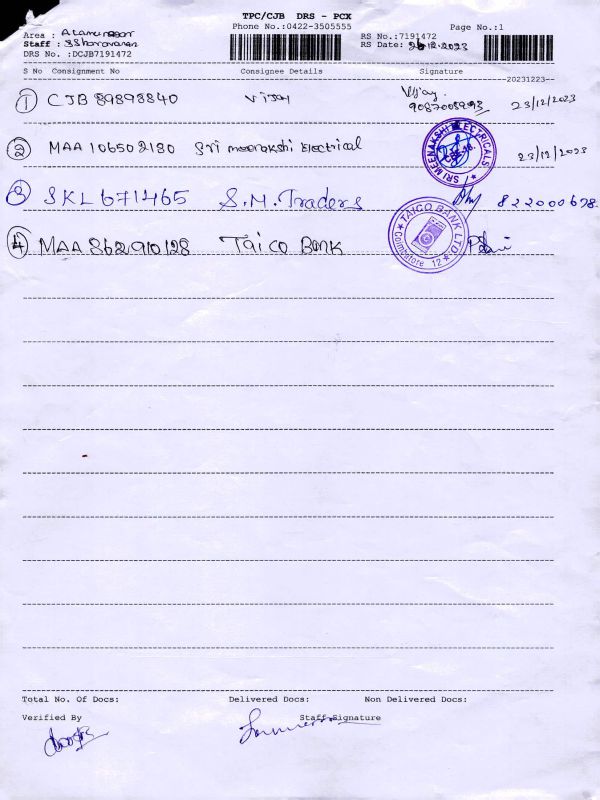 TPC/CJB DRS - PCX
Phone No.:0422-3505555
Page No.:1
Area : Alamunagar
RS No.:7191472
Staff : S Skaravanan
RS Date: 23-12-2023
DRS No. :DCJB7191472
S No Consignment No Consignee Details Signature
20231223--
1 CJB 89898840 Vijay Vijay
9087008993 23/12/2023
2 MAA 106502180 Sri meenakshi Electrical 23/12/2023
SRI MEENAKSHI ELECTRICALS
3 SKL671465 S.M. Traders 822000678
4 MAA 862910128 Taico Bank
TAICO BANK LTD
Coimbatore 12
Total No. Of Docs: Delivered Docs: Non Delivered Docs:
Verified By Staff Signature